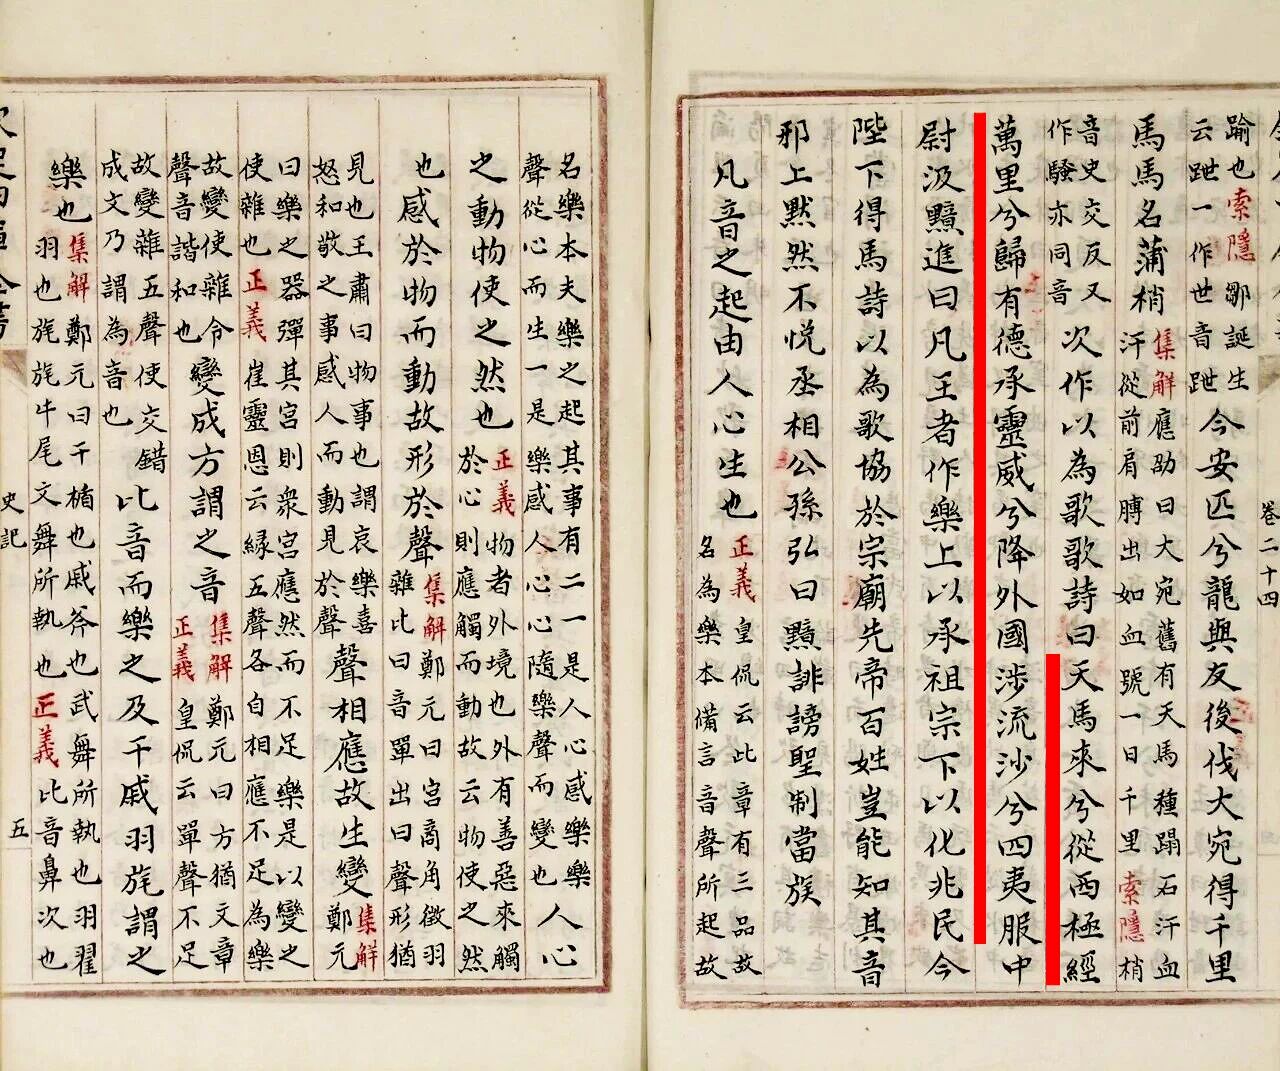 卷二十四
踰也索隱鄒誕生
云跇一作世音跇
今安匹兮龍與友後伐大宛得千里
馬馬名蒲梢
集解應劭曰大宛舊有天馬種蹋石汗血
汗從前肩膊出如血號一日千里索隱梢
音史交反又
作騷亦同音
次作以為歌歌詩曰天馬來兮從西極經
萬里兮歸有德承靈威兮降外國涉流沙兮四夷服中
尉汲黯進曰凡王者作樂上以承祖宗下以化兆民今
陛下得馬詩以為歌協於宗廟先帝百姓豈能知其音
邪上默然不悅丞相公孫弘曰黯誹謗聖制當族
凡音之起由人心生也
正義皇侃云此章有三品故
名為樂本備言音聲所起故
名樂本夫樂之起其事有二一是人心感樂樂
聲從心而生一是樂感人心心隨樂聲而變也
人心
之動物使之然也
正義物者外境也外有善惡來觸
於心則應觸而動故云物使之然
也感於物而動故形於聲
集解鄭元曰宮商角徵羽
雜比曰音單出曰聲形猶
見也王肅曰物事也謂哀樂喜
怒和敬之事感人而動見於聲
聲相應故生變
集解
鄭元
曰樂之器彈其宮則衆宮應然而不足樂是以變之
使雜也正義崔靈恩云緣五聲各自相應不足為樂
故變使雜令
聲音諧和也
變成方謂之音
集解鄭元曰方猶文章
正義皇侃云單聲不足
故變雜五聲使交錯
成文乃謂為音也
比音而樂之及干戚羽旄謂之
樂也
集解鄭元曰干楯也戚斧也武舞所執也羽翟
羽也旄旄牛尾文舞所執也正義比音鼻次也
史記
五